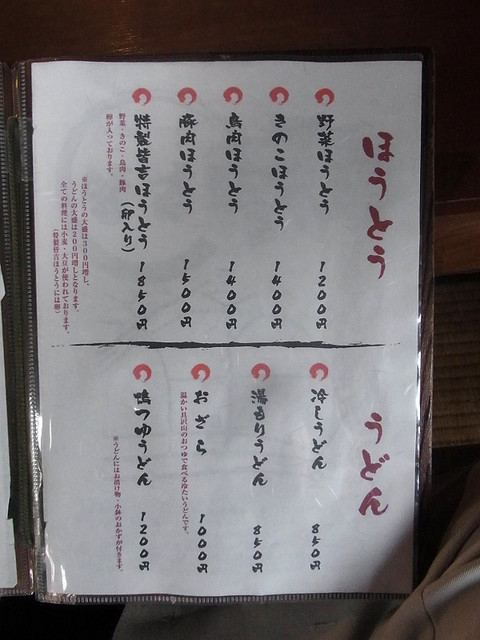 ほうとう
野菜ほうとう 1200円
きのこほうとう 1400円
鳥肉ほうとう 1400円
豚肉ほうとう 1500円
特製皆吉ほうとう（卵入り） 1850円
野菜・きのこ・鳥肉・豚肉
卵が入っております。
※ほうとうの大盛は300円増し、
うどんの大盛は200円増しとなります。
全ての料理には小麦・大豆が使われております。
（特製皆吉ほうとうには卵）
うどん
冷しうどん 850円
湯もりうどん 850円
おざら 1000円
温かい具沢山のおつゆで食べる冷たいうどんです。
鴨つゆうどん 1200円
※うどんにはお漬け物・小鉢のおかずが付きます。